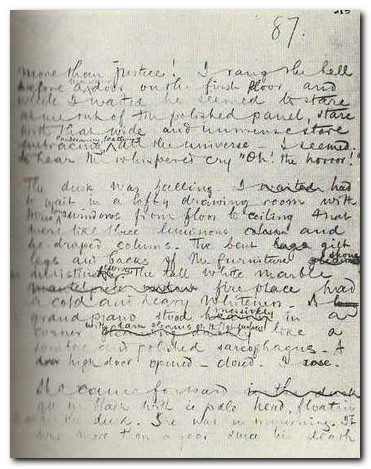 87.
more than justice! I rang the bell
before a door on the first floor and
while I waited he seemed to stare
at me out of the polished panel, stare
with that wide and immense stare
embracing, condemning, loathing all the universe. I seemed
to hear the whispered cry "Oh! the horror!"
The dusk was falling. I had
to wait in a lofty drawing room with
three long windows from floor to ceiling that
were like three luminous and
be draped colums. The bent gilt
legs and backs of the furniture shone
in indistinct curves. The tall white marble
fire place had
a cold and heavy whiteness. A
grand piano stood massively in a
corner with dark gleams on like a
sombre and polished sarcophagus. A
high door opened – closed. I rose.
She came forward
all in black with a pale head, floating
in the dusk. She was in mourning. It
was more than a year since his death